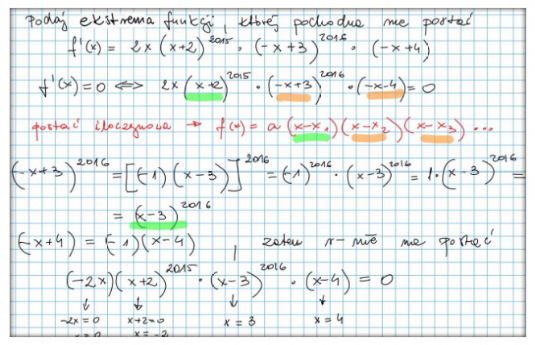 Podaj ekstrema funkcji, której pochodna ma postać
f'(x) = 2x (x+2)^2015 · (-x+3)^2016 · (-x+4)
f'(x) = 0 ⟺ 2x (x+2)^2015 · (-x+3)^2016 · (-x-4) = 0
postać iloczynowa → f(x) = a (x-x₁)(x-x₂)(x-x₃) ...
(-x+3)^2016 = [(-1)(x-3)]^2016 = (-1)^2016 · (x-3)^2016 = 1·(x-3)^2016 =
= (x-3)^2016
(-x+4) = (-1)(x-4), zatem r-nie ma postać
(-2x)(x+2)^2015 · (x-3)^2016 · (x-4) = 0
↓ ↓ ↓ ↓
-2x=0 x+2=0 x=3 x=4
x=-2